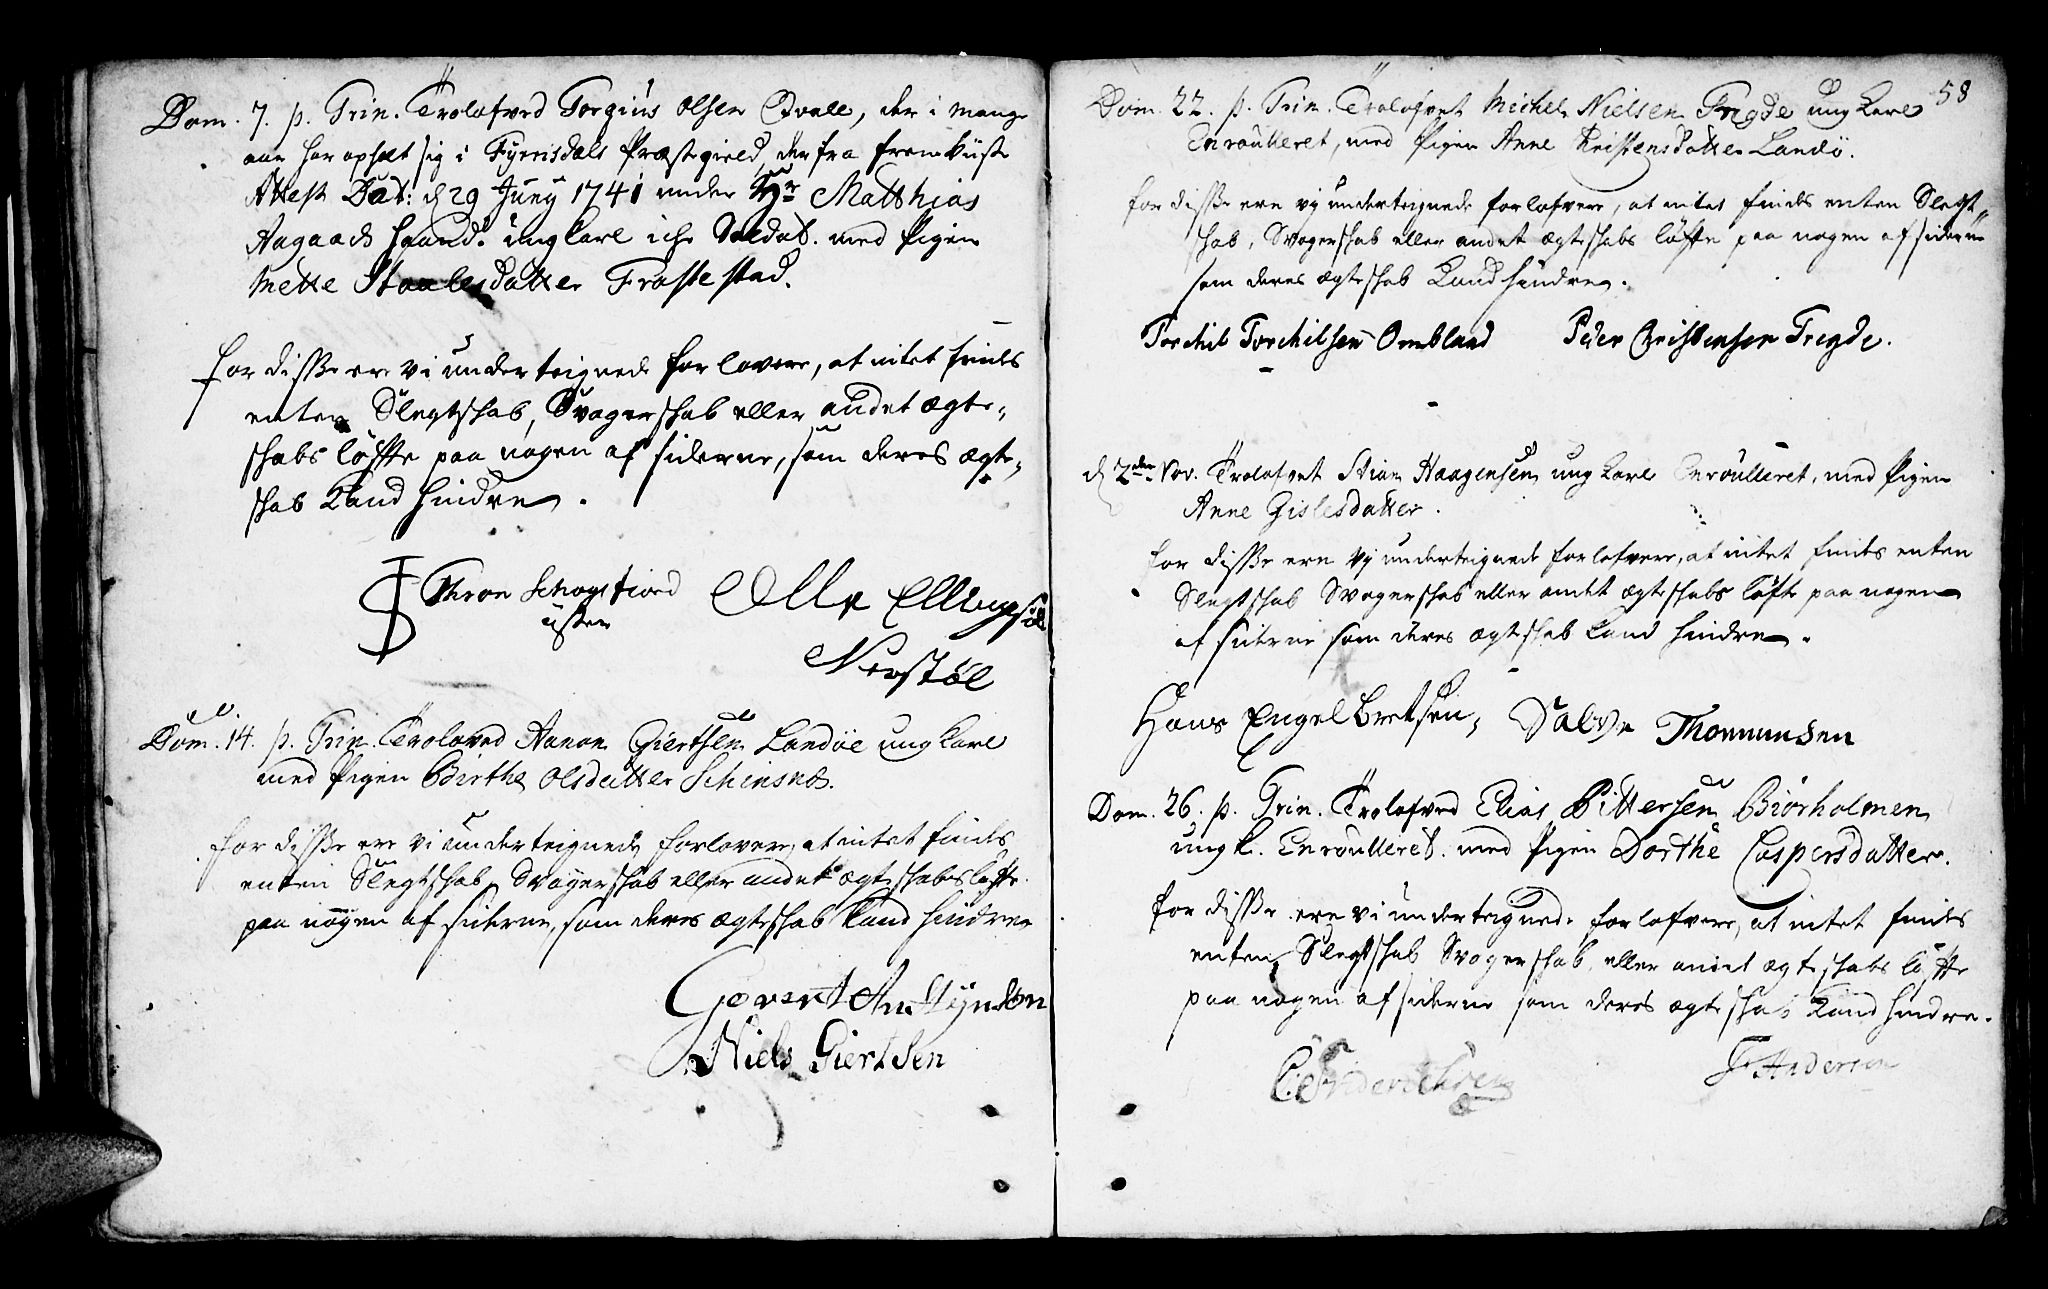 Dom. 7. p. Trin. Trolofved Torgius Olsen Qvale, der i mange
aar har opholt sig i Fyrrisdals Præstegield, derfra fremviiste
Attest Dat: d 29 Juny 1741 under Hr Matthias
Aagaards haand. ung karl iche Soldat. med Pigen
Mette Staalesdatter Frøstestad.
for disse ere vi underteignede forlovere, at intet findes
enten Slegtschab, Svogerschab eller andet ægte-
schabs løffte paa nogen af siderne, som deres ægte-
schab Kand hindre.
Thron Schogsfiord
Olle Ellingsøn
Nerstøl
Dom. 14. p. Trin. Troloved Aanon Giertsen Landøe ung karl
med Pigen Birthe Olsdatter Schinsnes.
for disse ere vi underteignede forlovere, at intet findes
enten Slegtschab, Svogerschab eller andet ægteschabs løffte
paa nogen af siderne, som deres ægteschab kand hindre
Govert An Stynson
Niels Giertsen
58
Dom. 22. p. Trin. Trolofvet Michel Nielsen Tregde ung karl
Enroulleret, med Pigen Anne Kristensdatter Landø.
for disse ere vy underteignede forlofvere, at intet findes enten Slegt-
schab, Svogerschab eller andet ægteschabs løffte paa nogen af siderne
som deres ægteschab Kand hindre.
Torchil Torchilsen Omland Peder Christensen Tregde.
d 2den Nov. Trolofvet Stian Haagensen ung karl Enroulleret, med Pigen
Anne Gislesdatter.
for disse ere vy underteignede forlofvere, at intet findes enten
Slegtschab Svogerschab eller andet ægteschabs løfte paa nogen
af siderne som deres ægteschab kand hindre.
Hans Engelbretsen, Salve Thommunsen
Dom. 26. p. Trin. Trolofved Elias Pittersen Biørholmen
ung k. Enroulleret. med Pigen Dorthe Caspersdatter.
for disse ere vi underteignede forlofvere, at intet findes
enten Slegtschab Svogerschab, eller andet ægteschabs løffte
paa nogen af siderne som deres ægteschab Kand hindre.
Andersen